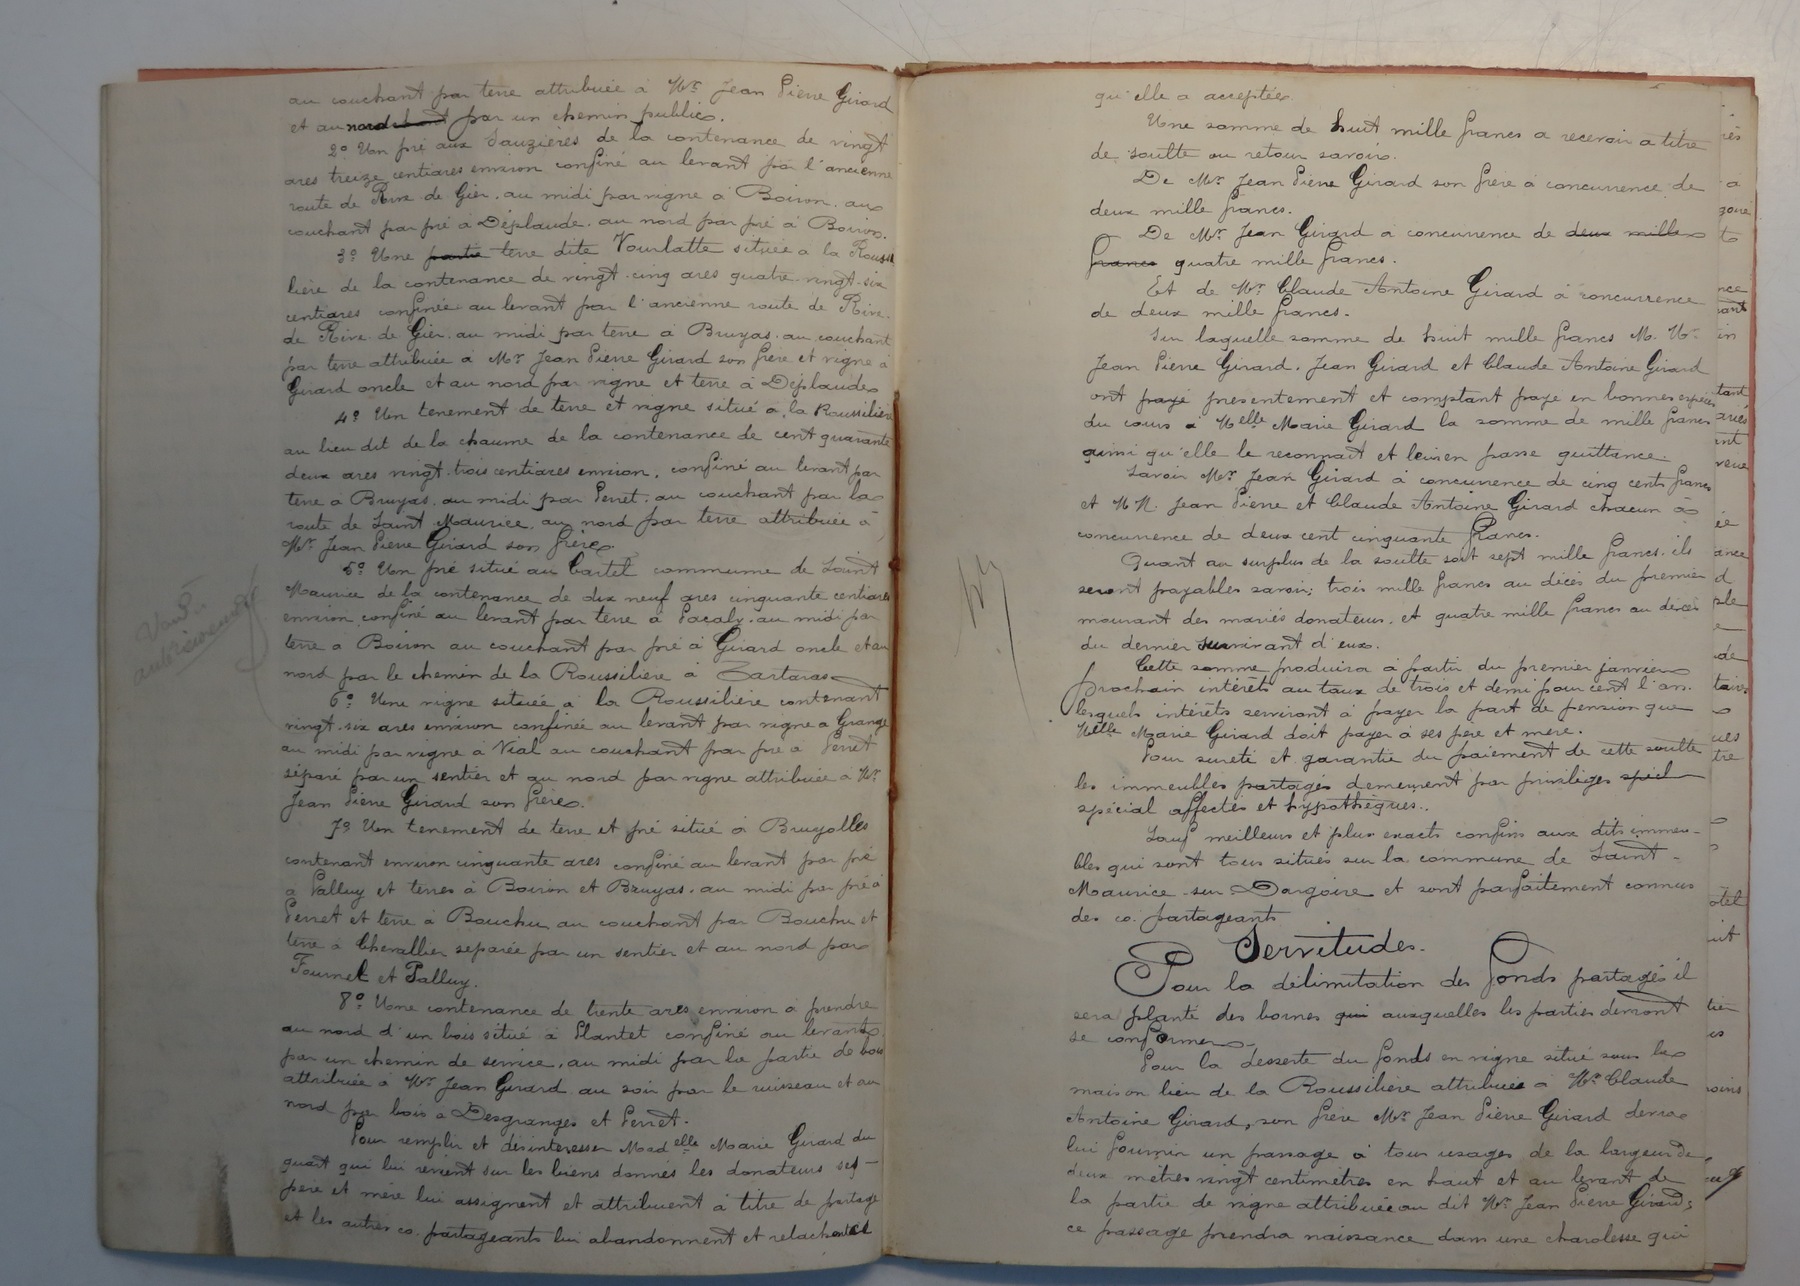 au couchant par terre attribuée à Mr Jean Pierre Girard
et au nord par un chemin public.
2o Un pré aux Sauzières de la contenance de vingt
ares treize centiares environ confiné au levant par l'ancienne
route de Rive de Gier, au midi par vigne à Boiron, au
couchant par pré à Déplaude, au nord par pré à Boiron.
3o Une partie terre dite Vourlatte située à la Roussi
lière de la contenance de vingt-cinq ares quatre-vingt-six
centiares confinée au levant par l'ancienne route de Rive
de Rive de Gier, au midi par terre à Bruyas, au couchant
par terre attribuée à Mr Jean Pierre Girard son frère et vigne à
Girard oncle et au nord par vigne et terre à Déplaude
4o Un tenement de terre et vigne situé à la Roussilière
au lieu dit de la chaume de la contenance de cent quarante
deux ares vingt-trois centiares environ, confiné au levant par
terre à Bruyas, au midi par Perret, au couchant par la
route de Saint Maurice, au nord par terre attribuée à
Mr Jean Pierre Girard son frère
5o Un pré situé au Cartel commune de Saint
Maurice de la contenance de dix neuf ares cinquante centiares
environ confiné au levant par terre à Pacaly, au midi par
terre à Boiron au couchant par pré à Girard oncle et au
nord par le chemin de la Roussilière à Tartaras
Vendu
antérieurement
6o Une vigne située à la Roussilière contenant
vingt-six ares environ confinée au levant par vigne à Grange
au midi par vigne à Vial au couchant par pré à Perret
séparé par un sentier et au nord par vigne attribuée à Mr
Jean Pierre Girard son frère.
7o Un tenement de terre et pré situé à Bruyolles
contenant environ cinquante ares confiné au levant par pré
à Palluy et terres à Boiron et Bruyas, au midi par pré à
Perret et terre à Bouchu au couchant par Bouchu et
terre à Chevallier separée par un sentier et au nord par
Fournel et Palluy.
8o Une contenance de trente ares environ à prendre
au nord d'un bois situé à Plantet confiné au levant
par un chemin de service, au midi par la partie de bois
attribuée à Mr Jean Girard au soir par le ruisseau et au
nord par bois à Desgranges et Perret.
Pour remplir et désintéresser Madelle Marie Girard du
quart qui lui revient sur les biens donnés les donateurs ses
père et mère lui assignent et attribuent à titre de partage
et les autres co-partageants lui abandonnent et relachent ce
qu'elle a acceptée
Une somme de huit mille francs a recevoir a titre
de soulte ou retour savoir.
De Mr Jean Pierre Girard son frère à concurrence de
deux mille francs.
De Mr Jean Girard a concurrence de deux mille
francs quatre mille francs.
Et de Mr Claude Antoine Girard à concurrence
de deux mille francs.
Sur laquelle somme de huit mille francs M. Mr
Jean Pierre Girard, Jean Girard et Claude Antoine Girard
ont payé presentement et comptant payé en bonnes espèces
du cours à Melle Marie Girard la somme de mille francs
ainsi qu'elle le reconnait et leur en passe quittance.
Savoir Mr Jean Girard à concurrence de cinq cents francs
et M M. Jean Pierre et Claude Antoine Girard chacun à
concurrence de deux cent cinquante francs.
Quant au surplus de la soulte soit sept mille francs, ils
seront payables savoir; trois mille francs au décès du premier
mourant des mariés donateurs, et quatre mille francs au décès
du dernier survivant d'eux.
Cette somme produira à partir du premier janvier
prochain intérêts au taux de trois et demi pour cent l'an.
lesquels intérêts serviront à payer la part de pension que
Melle Marie Girard doit payer à ses père et mère.
Pour sureté et garantie du paiement de cette soulte
les immeubles partagés demeurent par privilèges spécl
spécial affectés et hypothèques.
Sauf meilleurs et plus exacts confins aux dits immeu-
bles qui sont tous situés sur la commune de Saint-
Maurice-sur-Dargoire et sont parfaitement connus
des co-partageants
Servitudes.
Pour la délimitation des fonds partagés il
sera planté des bornes qui auxquelles les parties devront
se conformer
Pour la desserte du fonds en vigne situé sous la
maison lieu de la Roussilière attribuée à Mr Claude
Antoine Girard, son frère Mr Jean Pierre Girard devra
lui fournir un passage à tous usages de la largeur de
deux mètres vingt centimètres en haut et au levant de
la partie de vigne attribuée au dit Mr Jean Pierre Girard;
ce passage prendra naissance dans une charolesse qui